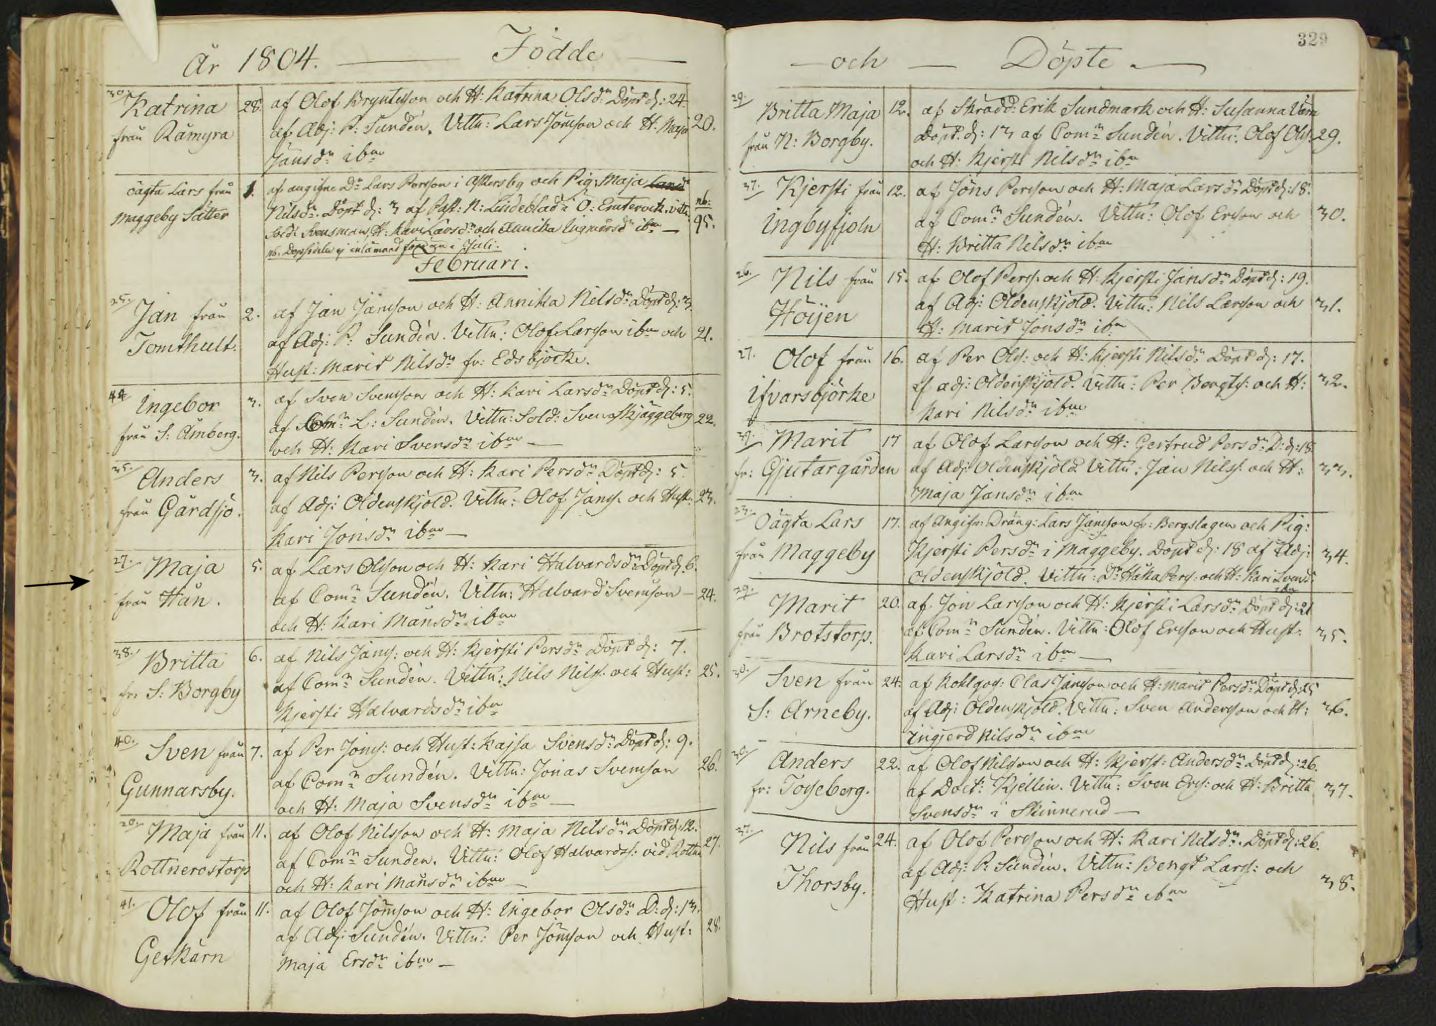 År 1804. Födde
30. Katrina 28. af Olof Bryntesson och H: Katrina Olsdn Döpt d: 24
från Rämyra af Adj: P: Sundén. Vittn: Lars Jonsson och H: Maja 20.
Jansdn ibm
oägta Lars från 1. af angifne Dr Lars Persson i Askersby och Pig: Maja
Maggeby Sätter Nilsdn. Döpt d: 3 af Past: N: Lindeblad i O: Emtervik. Vittn nb:
Sold: Svensman, H: Kari Larsdn och Annicka Ingmarsdn ibm 95.
nb. Döpsedeln ej inlämnad förr än i Juli.
Februari.
25. Jan från 2. af Jan Jansson och H: Annika Nilsdn Döpt d: 3.
Tomthult. af Adj: P: Sundén. Vittn: Olof Larsson ibm och 21.
Hust: Marit Nilsdn fr: Edsbjörke.
44 Ingebor 3. af Sven Svensson och H: Kari Larsdn Döpt d: 5.
från S: Åmberg. af Comr L: Sundén. Vittn: Sold: Sven Skjäggeberg 22.
och H: Kari Svensdn ibm
35. Anders 3. af Nils Persson och H: Kari Persdn Döpt d: 5
från Gårdsjö. af Adj: Oldenskjöld. Vittn: Olof Jans: och Hust: 23.
Kari Jonsdn ibm
27. Maja 5. af Lars Olsson och H: Kari Halvardsdn Döpt d: 6.
från Hån. af Comr Sundén. Vittn: Halvard Svensson 24.
och H: Kari Månsdn ibm
38. Britta 6. af Nils Jans: och H: Kjersti Persdn Döpt d: 7.
fr: S: Borgby af Comr Sundén. Vittn: Nils Nils: och Hust: 25.
Kjersti Halvardsdn ibm
40. Sven från 7. af Per Jons: och Hust: Kajsa Svensdn Döpt d: 9.
Gunnarsby. af Comr Sundén. Vittn: Jonas Svensson 26.
och H: Maja Svensdn ibm
20. Maja från 11. af Olof Nilsson och H: Maja Nilsdn Döpt d: 12.
Rottnerostorp af Comr Sundén. Vittn: Olof Halvards: vid Rottn 27.
och H: Kari Månsdn ibm
41. Olof från 11. af Olof Jonsson och H: Ingebor Olsdn D: d: 13.
Gerkärn af Adj: Sundén. Vittn: Per Jonsson och Hust: 28.
Maja Ersdn ibm
329
och Döpte
29. Britta Maja 12. af Skrädd: Erik Sundmark och H: Susanna
från N: Borgby. Döpt d: 13 af Comr Sundén. Vittn: Olof Ols: 29.
och H: Kjersti Nilsdn ibm
37. Kjersti från 12. af Jöns Persson och H: Maja Larsdn Döpt d: 18.
Ingbyfjoln af Comr Sundén. Vittn: Olof Ersson och 30.
H: Britta Nilsdn ibm
26. Nils från 15. af Olof Pers: och H: Kjersti Jansdn Döpt d: 19.
Höijen af Adj: Oldenskjöld. Vittn: Nils Larsson och 31.
H: Marit Jonsdn ibm
27. Olof från 16. af Per Ols: och H: Kjersti Nilsdn Döpt d: 17.
Ifvarsbjörke af Adj: Oldenskjöld. Vittn: Per Bengts: och H: 32.
Kari Nilsdn ibm
39. Marit 17 af Olof Larsson och H: Gertrud Persdn D: d: 18.
fr: Gjutargården af Adj: Oldenskjöld Vittn: Jan Nils: och H: 33.
Maja Jansdn ibm
23. Oägta Lars 17. af Angifv: Dräng: Lars Jansson fr: Bergslagen och Pig:
från Maggeby Kjersti Persdn i Maggeby. Döpt d: 18 af Adj: 34.
Oldenskjöld. Vittn: Dr Håka Pers: och H: Kari Svensd ibm
29. Marit 20. af Jon Larsson och H: Kjersti Larsdn Döpt d: 21
från Brotstorp. af Comr Sundén. Vittn: Olof Ersson och Hust: 35.
Kari Larsdn ibm
30. Sven från 24. af Kolkgos: Clas Jansson och H: Marit Persdn Döpt d: 25
S: Arneby. af Adj: Oldenskjöld. Vittn: Sven Andersson och H: 36.
Ingjerd Nilsdn ibm
30. Anders 22. af Olof Nilsson och H: Kjerst: Andersdn Döpt d: 26.
fr: Torseborg. af Doct: Kjellin. Vittn: Sven Ers: och H: Britta 37.
Svensdn i Skinnerud
37. Nils från 24. af Olof Persson och H: Kari Nilsdn. Döpt d: 26.
Thorsby. af Adj: P: Sundén. Vittn: Bengt Lars: och 38.
Hust: Katrina Persdn ibm